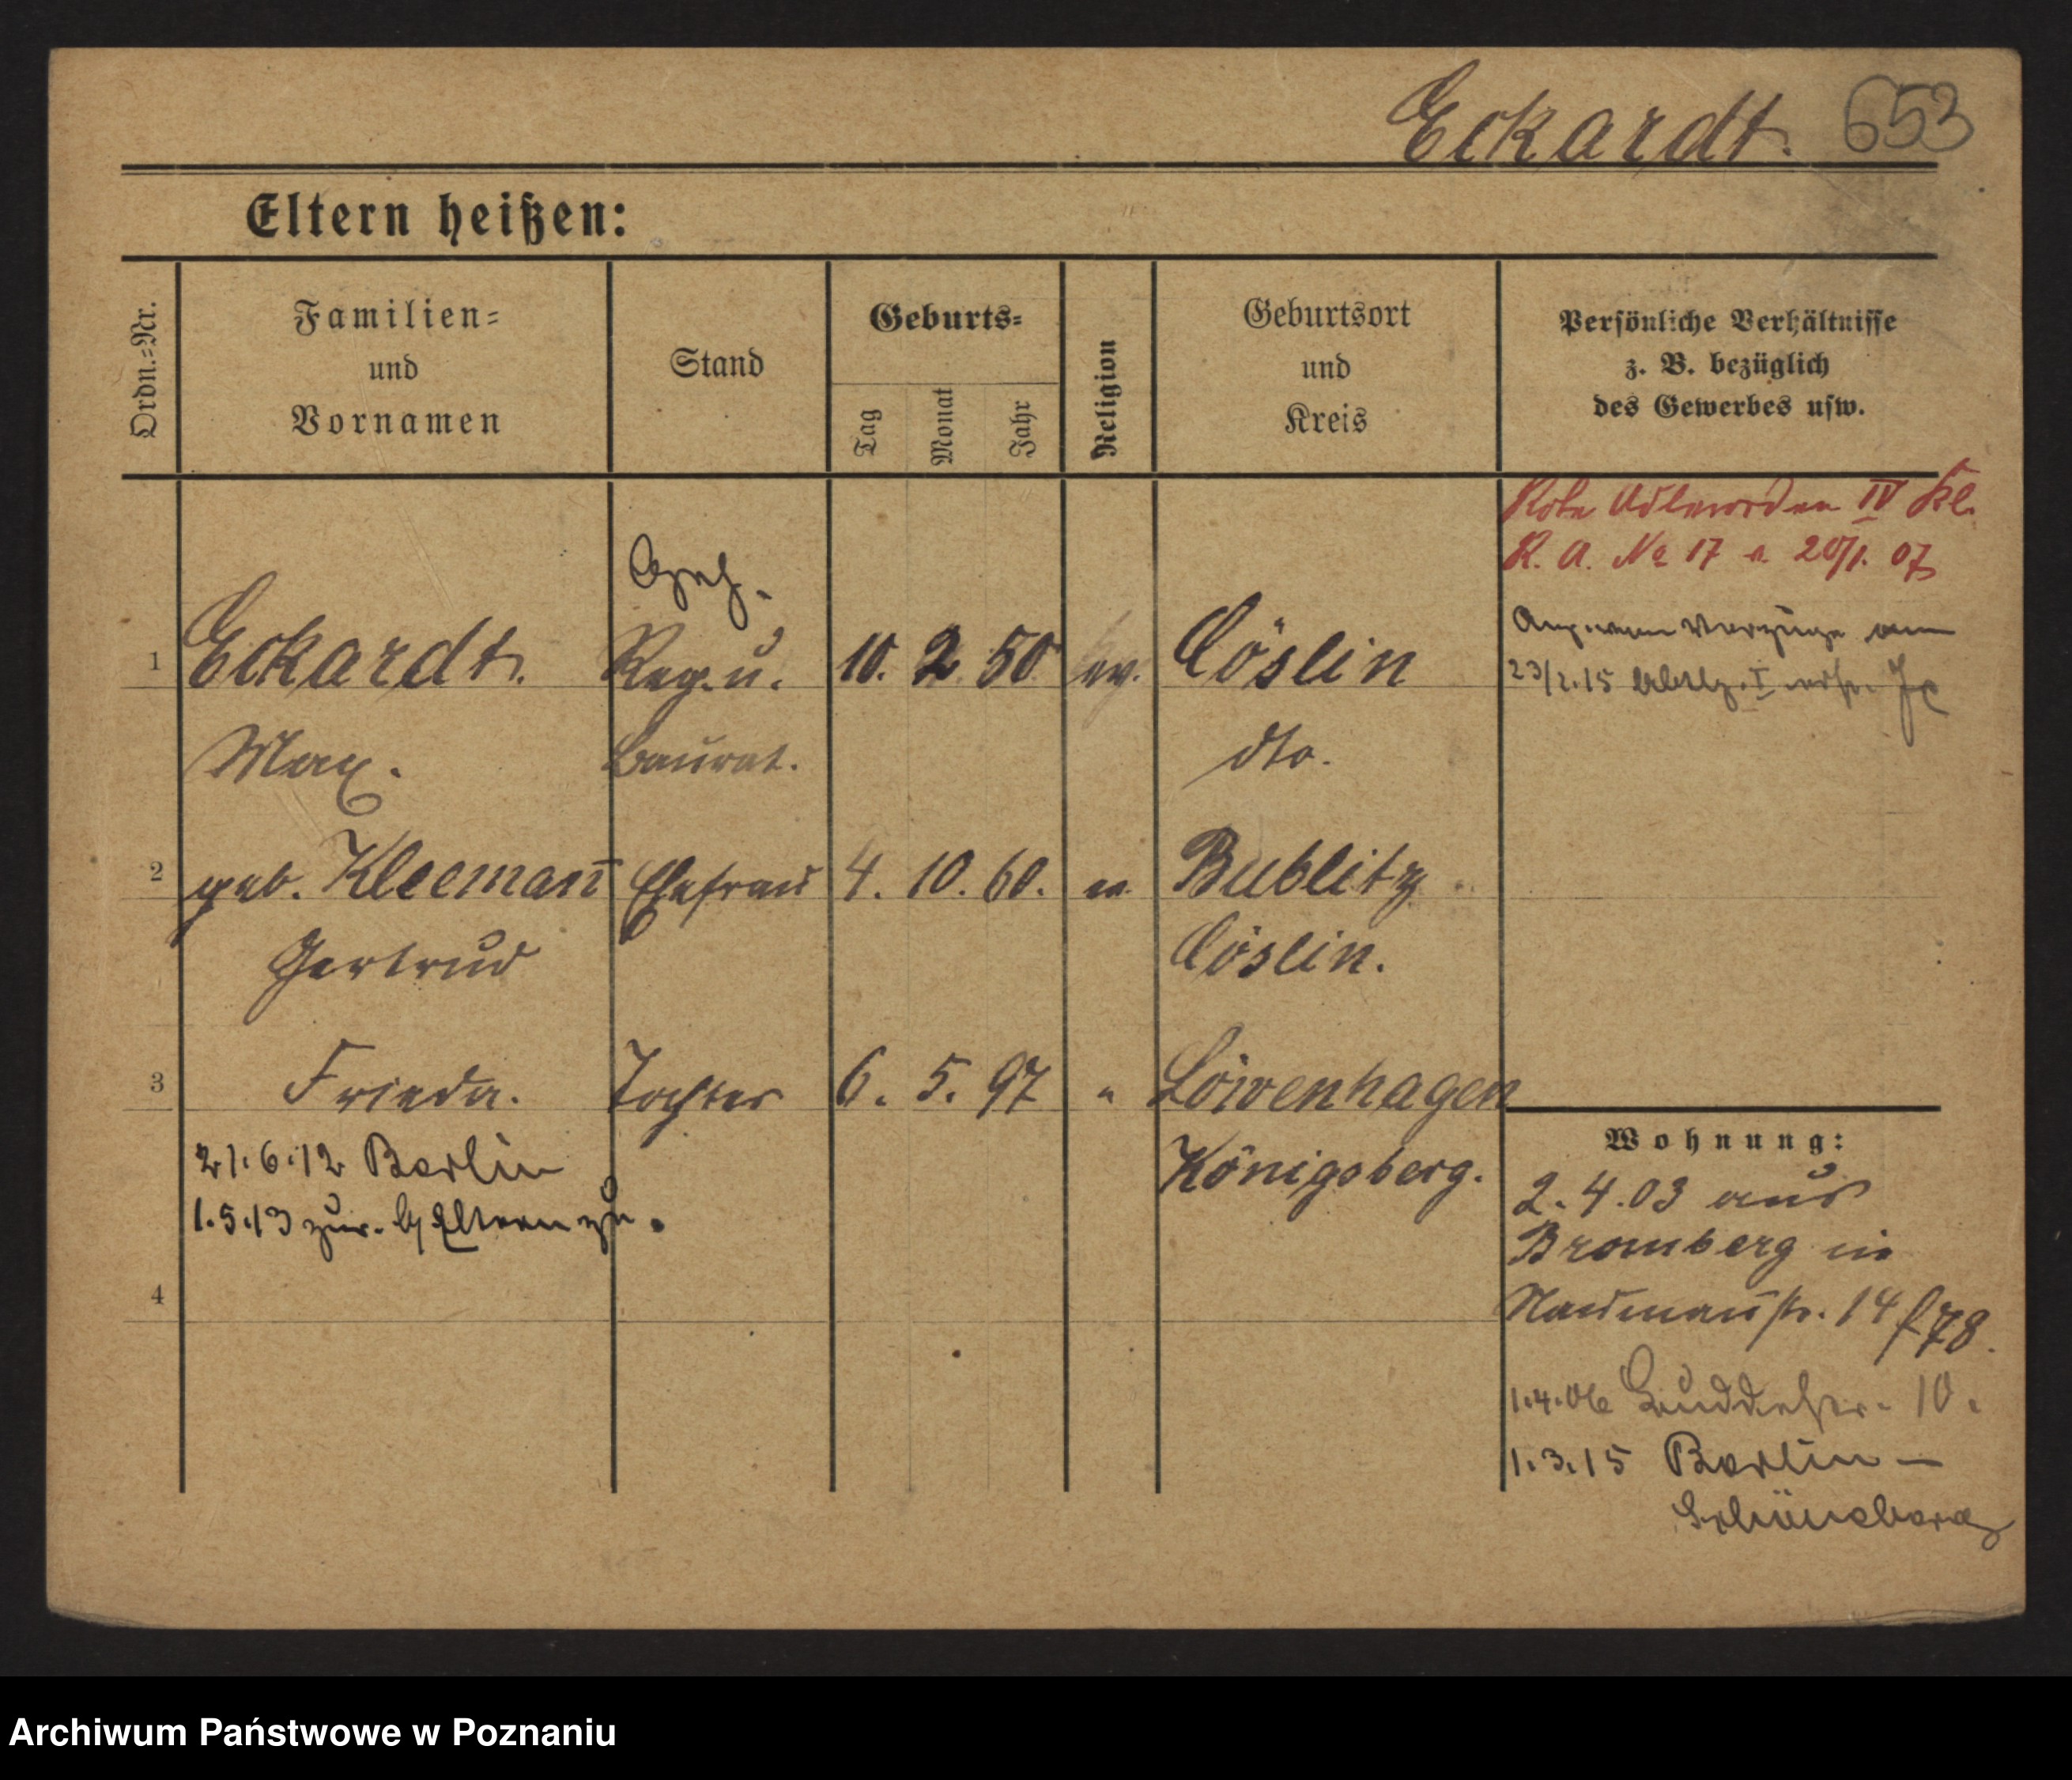 Eckardt. 653
Eltern heißen:
Ordn.=Nr.
Familien=
und
Vornamen
Stand
Geburts=
Tag
Monat
Jahr
Religion
Geburtsort
und
Kreis
Persönliche Verhältnisse
z. B. bezüglich
des Gewerbes usw.
Rote Adlerorden IV Kl.
R. A. No 17 v. 20/1. 07
Geh.
1 Eckardt. Reg. u. 10. 2. 50 ev. Cöslin
Max. Baurat. dto.
Verzuge am
23/2.15 Abtlg. I
2 geb. Kleemann Ehefrau 4. 10. 60. Bublitz
Gertrud Cöslin.
3 Frieda. Tochter 6. 5. 97 " Löwenhagen
Königsberg.
21.6.12 Berlin
1.5.13 zur. Eltern zu.
4
Wohnung:
2.4.03 aus
Bromberg in
Naumannstr. 14 f 78.
1.4.06 10.
1.3.15 Berlin –
Schöneberg
Archiwum Państwowe w Poznaniu